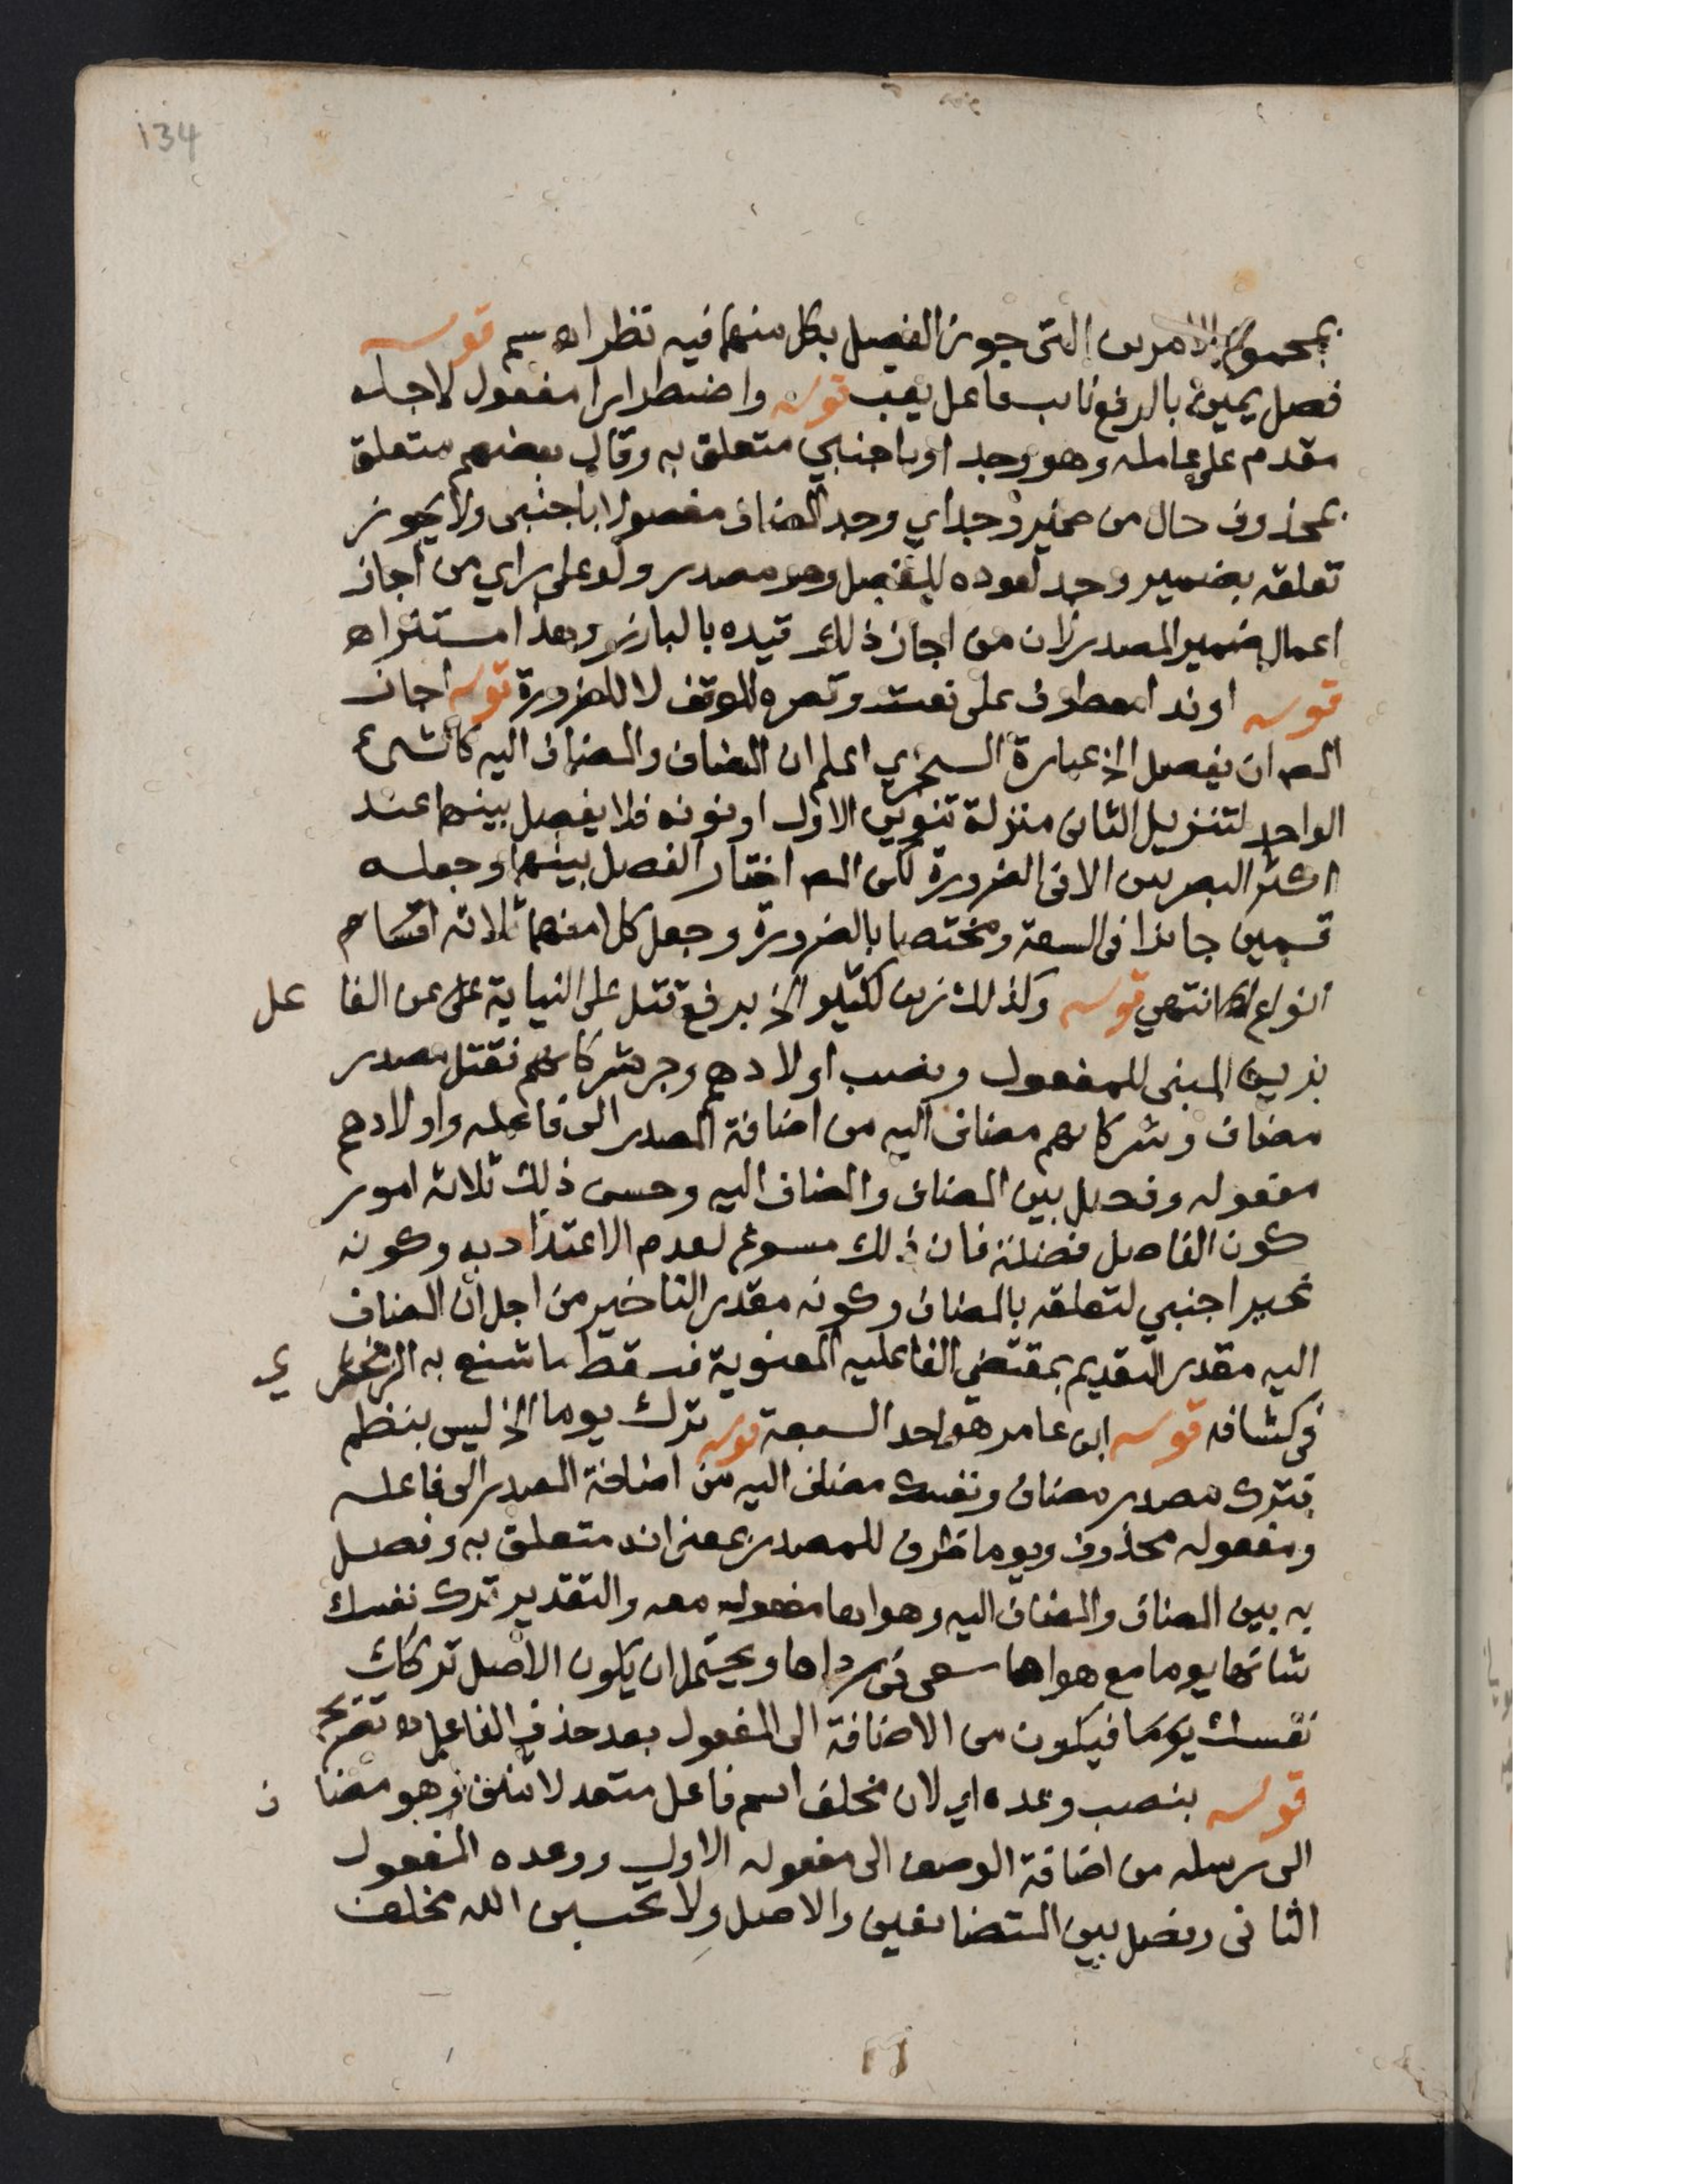 134
بمجموع الامرين التى جوز الفصل بكل منهما فيه نظر اه سم قوله
فصل يمين بالرفع نايب فاعل يعب قوله واضطرارا مفعول لاجله
مقدم على عامله وهو وجد او باجنبي متعلق به وقال بعضهم متعلق
بمحذوف حال من ضمير وجد اي وجد المضاف مفصولا باجنبى ولا يجوز
تعلقه بضمير وجد لعوده للفصل وهو مصدر ولو على راي من اجاز
اعمال ضمير المصدر لان من اجاز ذلك قيده بالبارز وهذا مستتر اه
قوله او ندا معطوف على نعت وقصره للوقف لا للضرورة قوله اجاز
المص ان يفصل الخ عبارة السجزي اعلم ان المضاف والمضاف اليه كالشىء
الواحد لتنزيل الثانى منزلة تنوين الاول او نونه فلا يفصل بينهما عند
اكثر البصريين الا فى الضرورة لكن المص اختار الفصل بينهما وجعله
قسمين جائزا فى السعة ومختصا بالضرورة وجعل كلا منهما ثلاثة اقسام
انواع انتهي قوله وكذلك زين لكثير الخ برفع قتل على النيابة عن الفا عل
بزين المبنى للمفعول ونصب اولادهم وجر شركائهم فقتل مصدر
مضاف وشركائهم مضاف اليه من اضافة المصدر الى فاعله واولادهم
مفعوله وفصل بين المضاف والمضاف اليه وحسن ذلك ثلاثة امور
كون الفاصل فضلة فان ذلك مسوغ لعدم الاعتداد به وكونه
غير اجنبي لتعلقه بالمضاف وكونه مقدر التاخير من اجل ان المضاف
اليه مقدر التقديم بمقتضي الفاعليه المعنوية فسقط ما شنع به الزمخشر ي
فى كشافه قوله ابن عامر هو احد السبعة قوله ترك يوما الخ ليس بنظم
فترك مصدر مضاف ونفسك مضاف اليه من اضافة المصدر الى فاعله
ومفعوله محذوف ويوما ظرف للمصدر بمعنى انه متعلق به وفصل
به بين المضاف والمضاف اليه وهواها مفعوله معه والتقدير ترك نفسك
شانها يوما مع هواها سعى فى رداها ويحتمل ان يكون الاصل تركك
نفسك يوما فيكون من الاضافة الى المفعول بعد حذف الفاعل اه تصريح
قوله بنصب وعده اي لان مخلف اسم فاعل متعد لاثنين وهو مضا ف
الى رسله من اضافة الوصف الى مفعوله الاول ووعده المفعول
الثانى وفصل بين المتضايفين والاصل ولا تحسبن الله مخلف